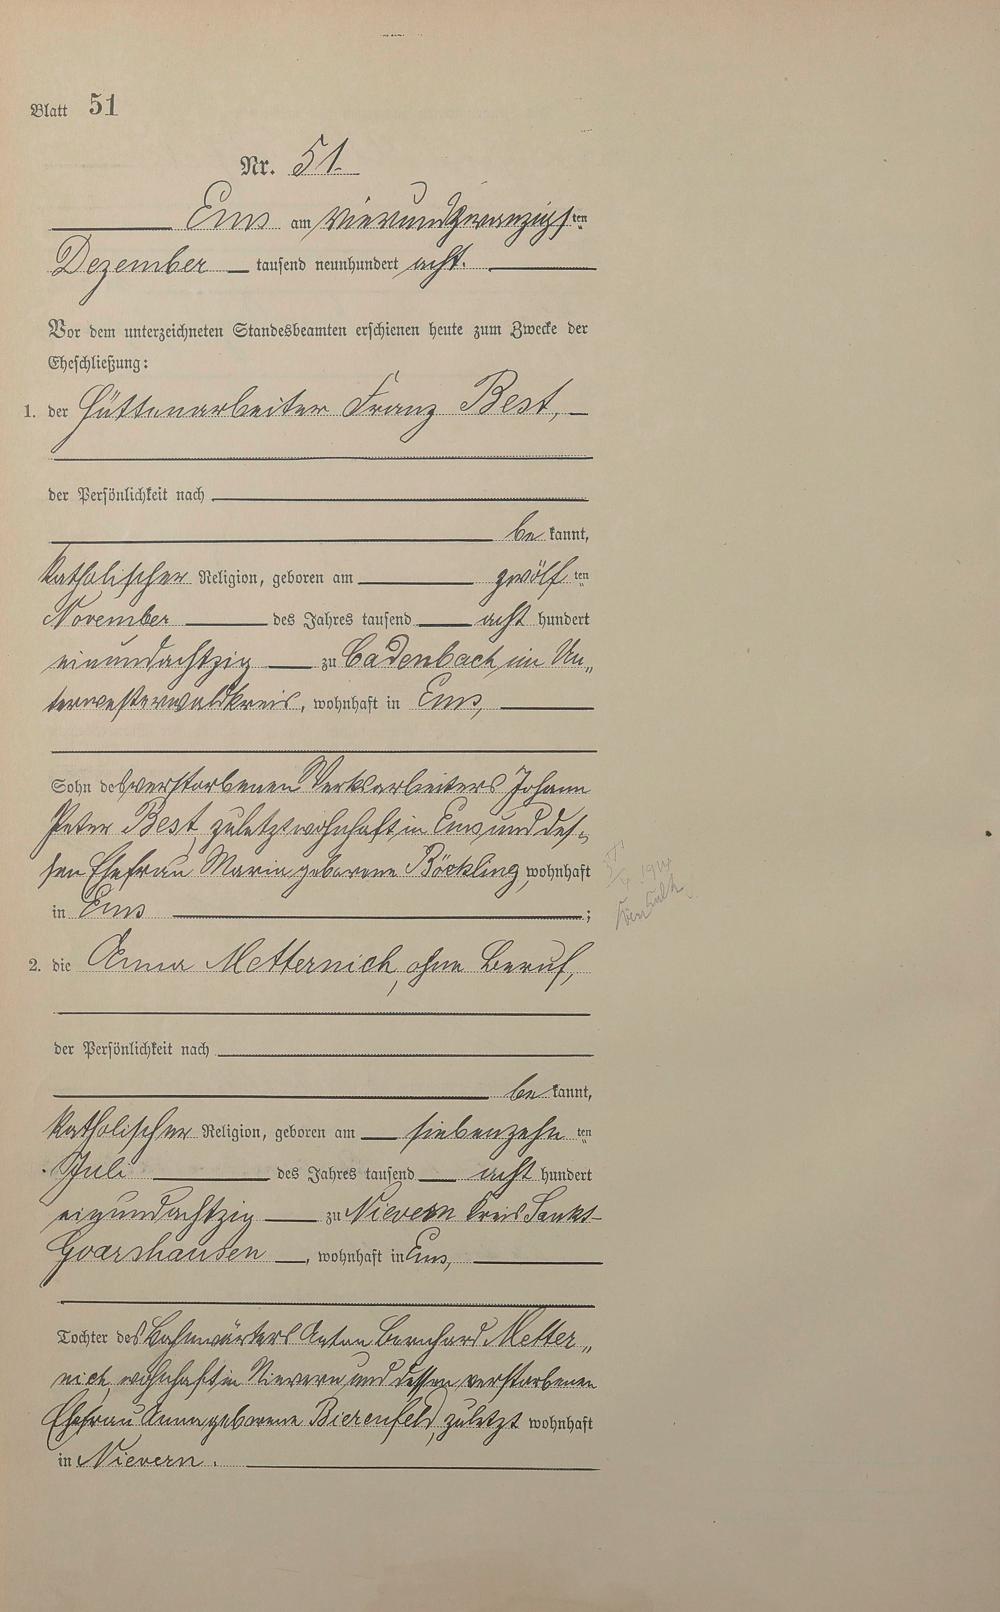 Blatt 51
Nr. 51
Ems am vierundzwanzigsten
Dezember tausend neunhundert acht.
Vor dem unterzeichneten Standesbeamten erschienen heute zum Zwecke der
Eheschließung:
1. der Hüttenarbeiter Franz Best,
der Persönlichkeit nach
bekannt,
katholischer Religion, geboren am zwölften
November des Jahres tausend acht hundert
einundachtzig zu Cadenbach im Un„
terwesterwaldkreis, wohnhaft in Ems,
Sohn des verstorbenen Werksarbeiters Johann
Peter Best, zuletzt wohnhaft in Ems und des„
sen Ehefrau Maria geborene Böckling, wohnhaft
in Ems ;
2. die Anna Metternich, ohne Beruf,
der Persönlichkeit nach
bekannt,
katholischer Religion, geboren am siebenzehnten
Juli des Jahres tausend acht hundert
einundachtzig zu Nievern Kreis Sankt-
Goarshausen, wohnhaft in Ems,
Tochter des Bahnwärters Anton Bernhard Metter„
nich, wohnhaft in Nievern und dessen verstorbenen
Ehefrau Anna geborene Bierenfeld, zuletzt wohnhaft
in Nievern.